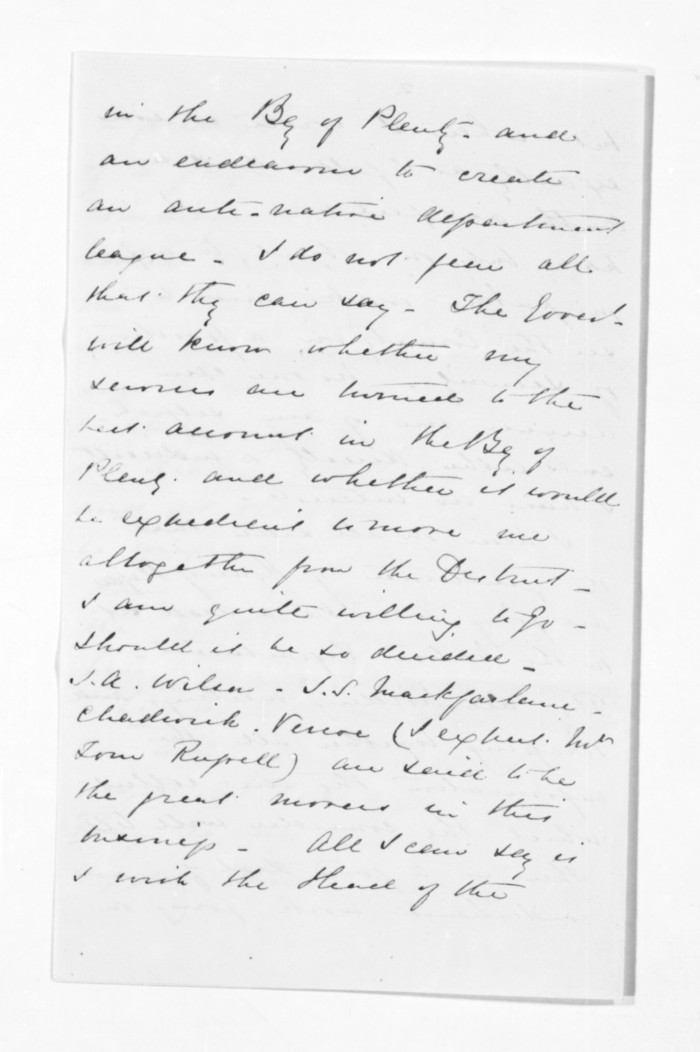 in the Bay of Plenty - and
an endeavour to create
an anti-native department
league - I do not fear all
that they can say - The Govert.
will know whether my
services are turned to the
best account in the Bay of
Plenty. and whether it would
be expedient to move me
altogether from the District -
I am quite willing to go -
should it be so decided -
J.A. Wilson - T.S. Mackfarlane -
Chadwick. Vercoe (I expect. Mr
Tom Russell) are said to be
the great movers in this
business - All I can say is
I wish the Head of the